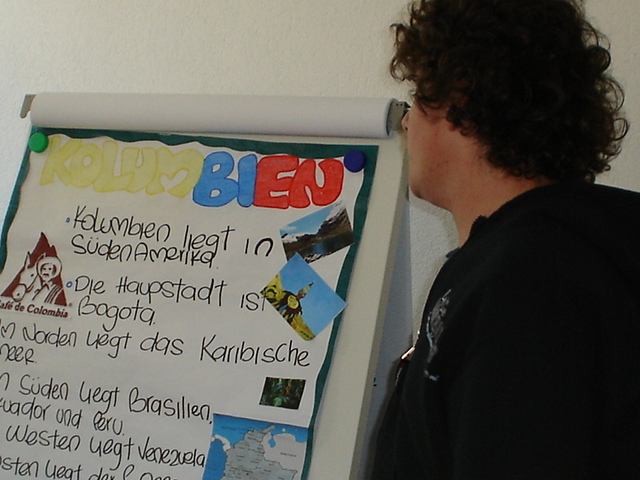 KOLUMBIEN
• Kolumbien liegt in
SüdenAmerika.
• Die Haupstadt ist
Bogota.
Café de Colombia
Norden liegt das Karibische
meer.
Süden liegt Brasilien,
und Peru.
Westen liegt Venezuela
liegt der